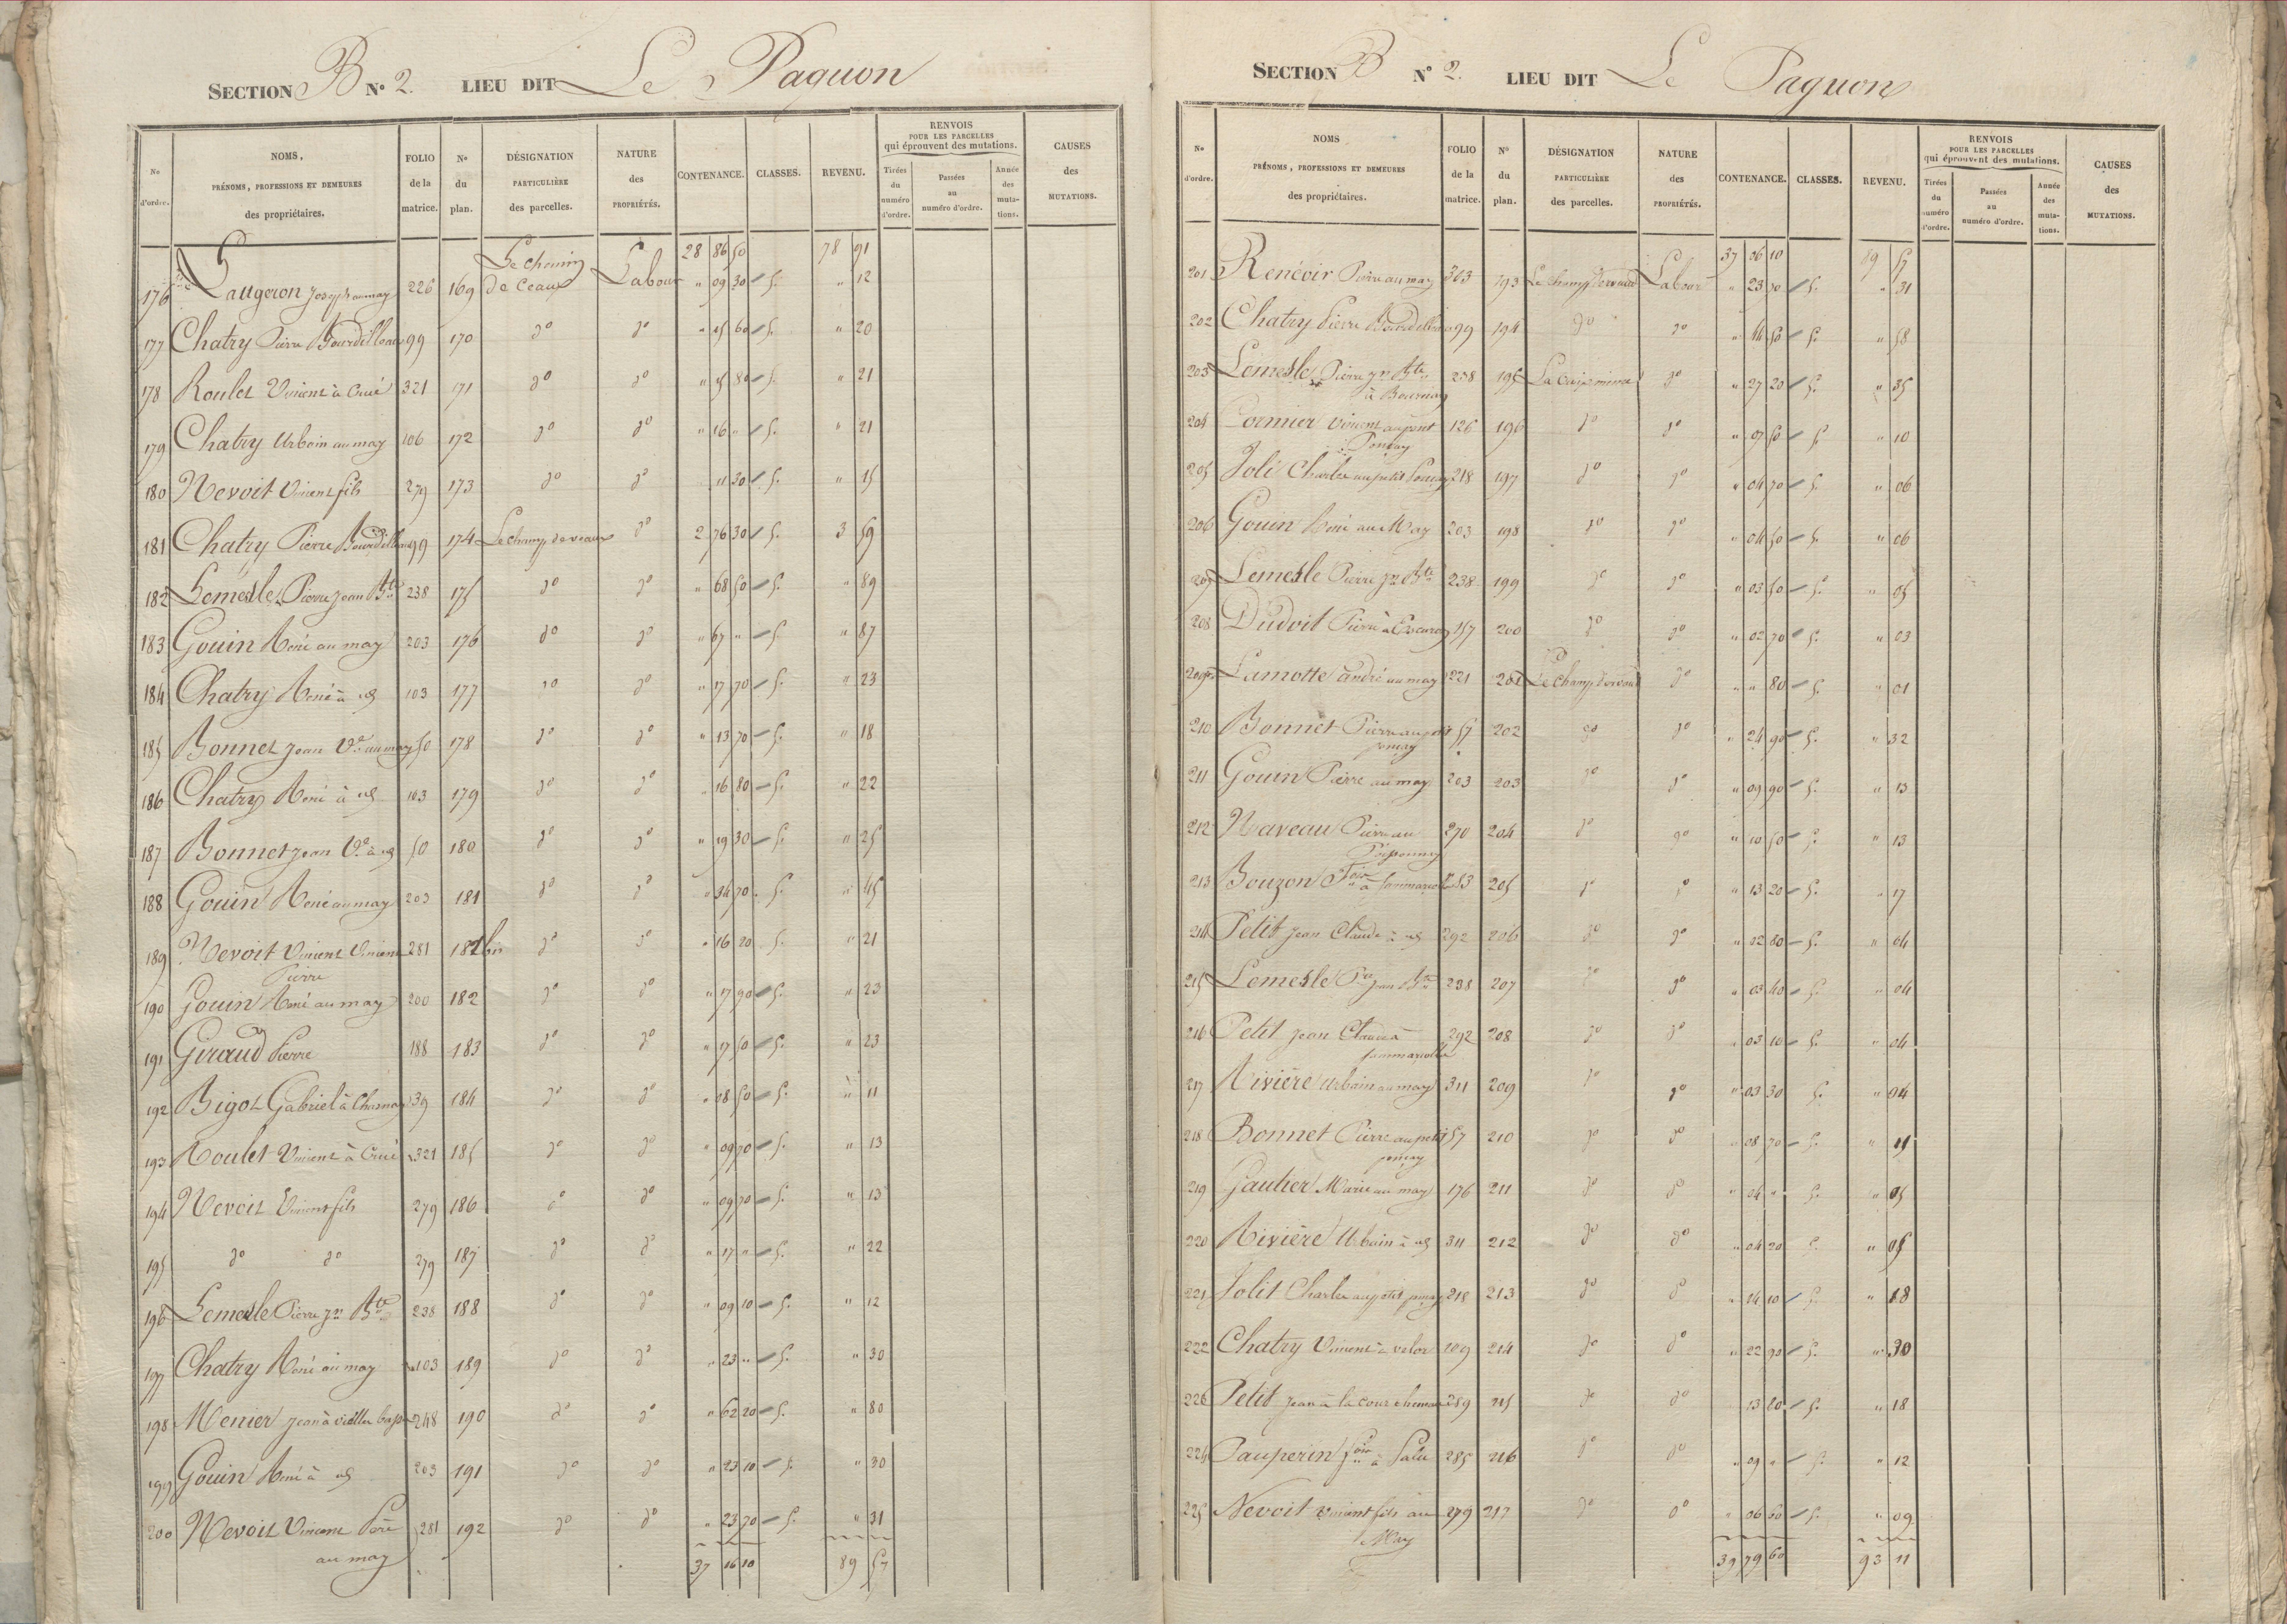 SECTION B N° 2. LIEU DIT Le Paquon
N° d'ordre. NOMS, PRÉNOMS, PROFESSIONS ET DEMEURES des propriétaires. FOLIO de la matrice. N° du plan. DÉSIGNATION PARTICULIÈRE des parcelles. NATURE des PROPRIÉTÉS. CONTENANCE. CLASSES. REVENU. RENVOIS POUR LES PARCELLES qui éprouvent des mutations. Tirées du numéro d'ordre. Passées au numéro d'ordre. Année des mutations. CAUSES des MUTATIONS.
28 86 50 78 91
176 Laugeron Joseph au may 226 169 Le chemin de Ceaux Labour " 09 30 5. " 12
177 Chatry Pierre Bourdilleau 99 170 do do " 15 60 5. " 20
178 Roulet Vincent à Crué 321 171 do do " 15 80 5. " 21
179 Chatry Urbain au may 106 172 do do " 16 " 5. " 21
180 Nevoit Vincent fils 279 173 do do 11 30 5. " 15
181 Chatry Pierre Bourdilleau 99 174 Le champ de veaux do 2 76 30 5. 3 59
182 Lemesle Pierre Jean Bte 238 175 do do " 68 50 5. " 89
183 Gouin René au may 203 176 do do " 67 " 5. " 87
184 Chatry René à id 103 177 do do " 17 70 5. " 23
185 Bonnet Jean Ve au may 50 178 do do " 13 70 5. " 18
186 Chatry René à id 103 179 do do " 16 80 5. " 22
187 Bonnet Jean Ve à id 50 180 do do " 19 30 5. " 25
188 Gouin René au may 203 181 do do " 34 70 5. " 45
189 Nevoit Vincent Vincent Pierre 281 181 bis do do " 16 20 5. " 21
190 Gouin René au may 200 182 do do " 17 90 5. " 23
191 Giraud Pierre 188 183 do do " 17 50 5. " 23
192 Bigot Gabriel à Charnay 39 184 do do " 08 50 5. " 11
193 Roulet Vincent à Crué 321 185 do do " 09 70 5. " 13
194 Nevoit Vincent fils 279 186 do do " 09 70 5. " 13
195 do do 279 187 do do " 17 " 5. " 22
196 Lemesle Pierre Jn Bte 238 188 do do " 09 10 5. " 12
197 Chatry René au may 103 189 do do " 23 " 5. " 30
198 Menier Jean à vieilles 248 190 do do " 62 20 5. " 80
199 Gouin René à id 203 191 do do " 23 10 5. " 30
200 Nevoit Vincent Père au may 281 192 do do " 23 70 5. " 31
37 16 10 89 57
SECTION B N° 2. LIEU DIT Le Paquon
N° d'ordre. NOMS PRÉNOMS, PROFESSIONS ET DEMEURES des propriétaires. FOLIO de la matrice. N° du plan. DÉSIGNATION PARTICULIÈRE des parcelles. NATURE des PROPRIÉTÉS. CONTENANCE. CLASSES. REVENU. RENVOIS POUR LES PARCELLES qui éprouvent des mutations. Tirées du numéro d'ordre. Passées au numéro d'ordre. Année des mutations. CAUSES des MUTATIONS.
37 06 10 89 57
201 Renéoir Pierre au may 303 193 Le champ de veaux Labour " 23 70 5. " 31
202 Chatry Pierre Bourdilleau 99 194 do do " 44 50 5. " 58
203 Lemesle Pierre Jn Bte à Bournay 238 195 do " 27 20 5. " 35
204 Cormier Vincent au petit Ponçay 126 196 do do " 07 50 5 " 10
205 Joli Charles au petit Ponçay 218 197 do do " 04 70 5. " 06
206 Gouin René au May 203 198 do do " 04 50 5. " 06
207 Lemesle Pierre Jn Bte 238 199 do do " 03 50 5. " 05
208 Dudoit Pierre à 157 200 do do " 02 70 5. " 03
209 Lamotte André au may 221 201 Le champ de veaux do " " 80 5. " 01
210 Bonnet Pierre au petit ponçay 57 202 do do " 24 90 5. " 32
211 Gouin Pierre au may 203 203 do do " 09 90 5. " 13
212 Naveau Pierre au 270 204 do do " 10 50 5. " 13
213 Bouzon Fois à Sammarcolle 53 205 do do " 13 20 5. " 17
214 Petit Jean Claude à id 292 206 do do " 02 80 5. " 04
215 Lemesle Pre Jean Bte 238 207 do do " 03 40 5. " 04
216 Petit Jean Claude à Sammarcolle 292 208 do do " 03 10 5. " 04
217 Rivière Urbain au may 311 209 do do " 03 30 5. " 04
218 Bonnet Pierre au petit ponçay 57 210 do do " 08 70 5. " 11
219 Gautier Marie au may 176 211 do do " 04 " 5. " 05
220 Rivière Urbain à id 311 212 do do " 04 20 5. " 05
221 Jolit Charles au petit ponçay 218 213 do do " 14 10 5. " 18
222 Chatry Vincent à velor 109 214 do do " 22 90 5. " 30
226 Petit Jean à la cour 289 215 do do 13 20 5. " 18
224 Pauperin Fois à 285 216 do do " 09 " 5. " 12
225 Nevoit Vincent fils au May 279 217 do do " 06 60 5. " 09
39 79 60 93 11